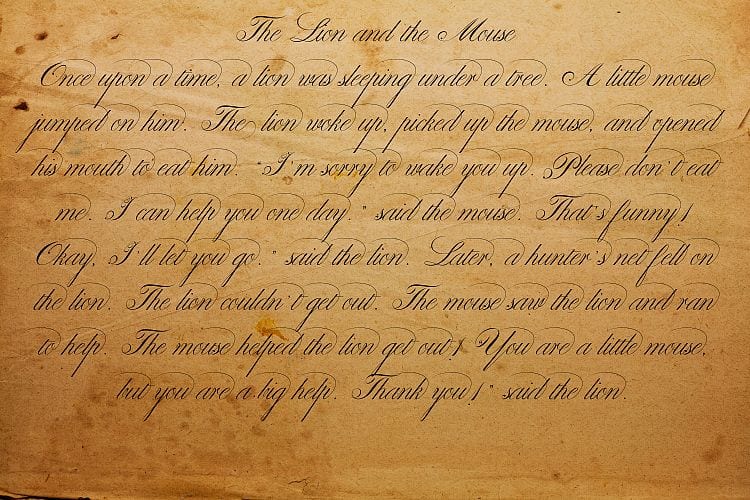 The Lion and the Mouse
Once upon a time, a lion was sleeping under a tree. A little mouse
jumped on him. The lion woke up, picked up the mouse, and opened
his mouth to eat him. "I'm sorry to wake you up. Please don't eat
me. I can help you one day." said the mouse. That's funny!
Okay, I'll let you go." said the lion. Later, a hunter's net fell on
the lion. The lion couldn't get out. The mouse saw the lion and ran
to help. The mouse helped the lion get out! You are a little mouse,
but you are a big help. Thank you!" said the lion.